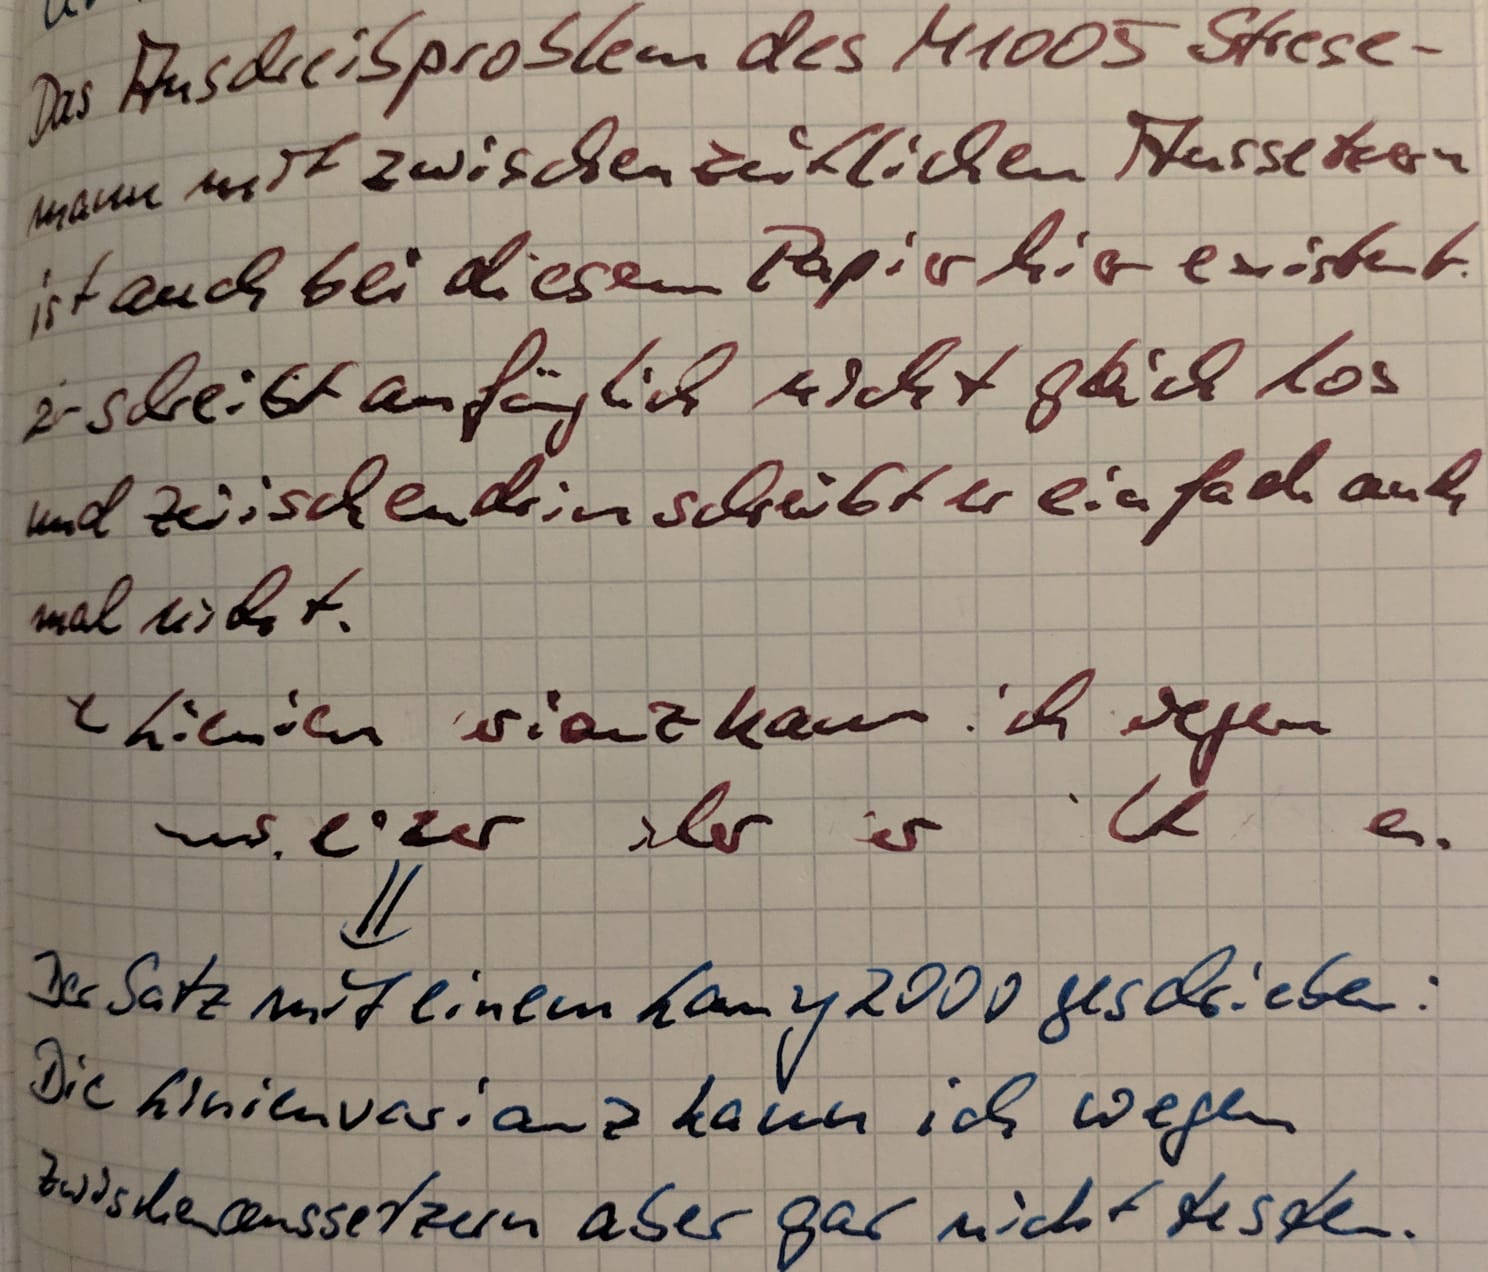 Das Anschreibproblem des M1005 Strese-
mann mit zwischenzeitlichen Aussetzern
ist auch bei diesem Papier hier existent.
Er schreibt anfänglich nicht gleich los
und zwischendrin schreibt er einfach auch
mal nicht.
kann ich wegen
⇓
Der Satz mit einem Lamy 2000 geschrieben:
Die Linienvarianz kann ich wegen
Zwischenaussetzern aber gar nicht testen.